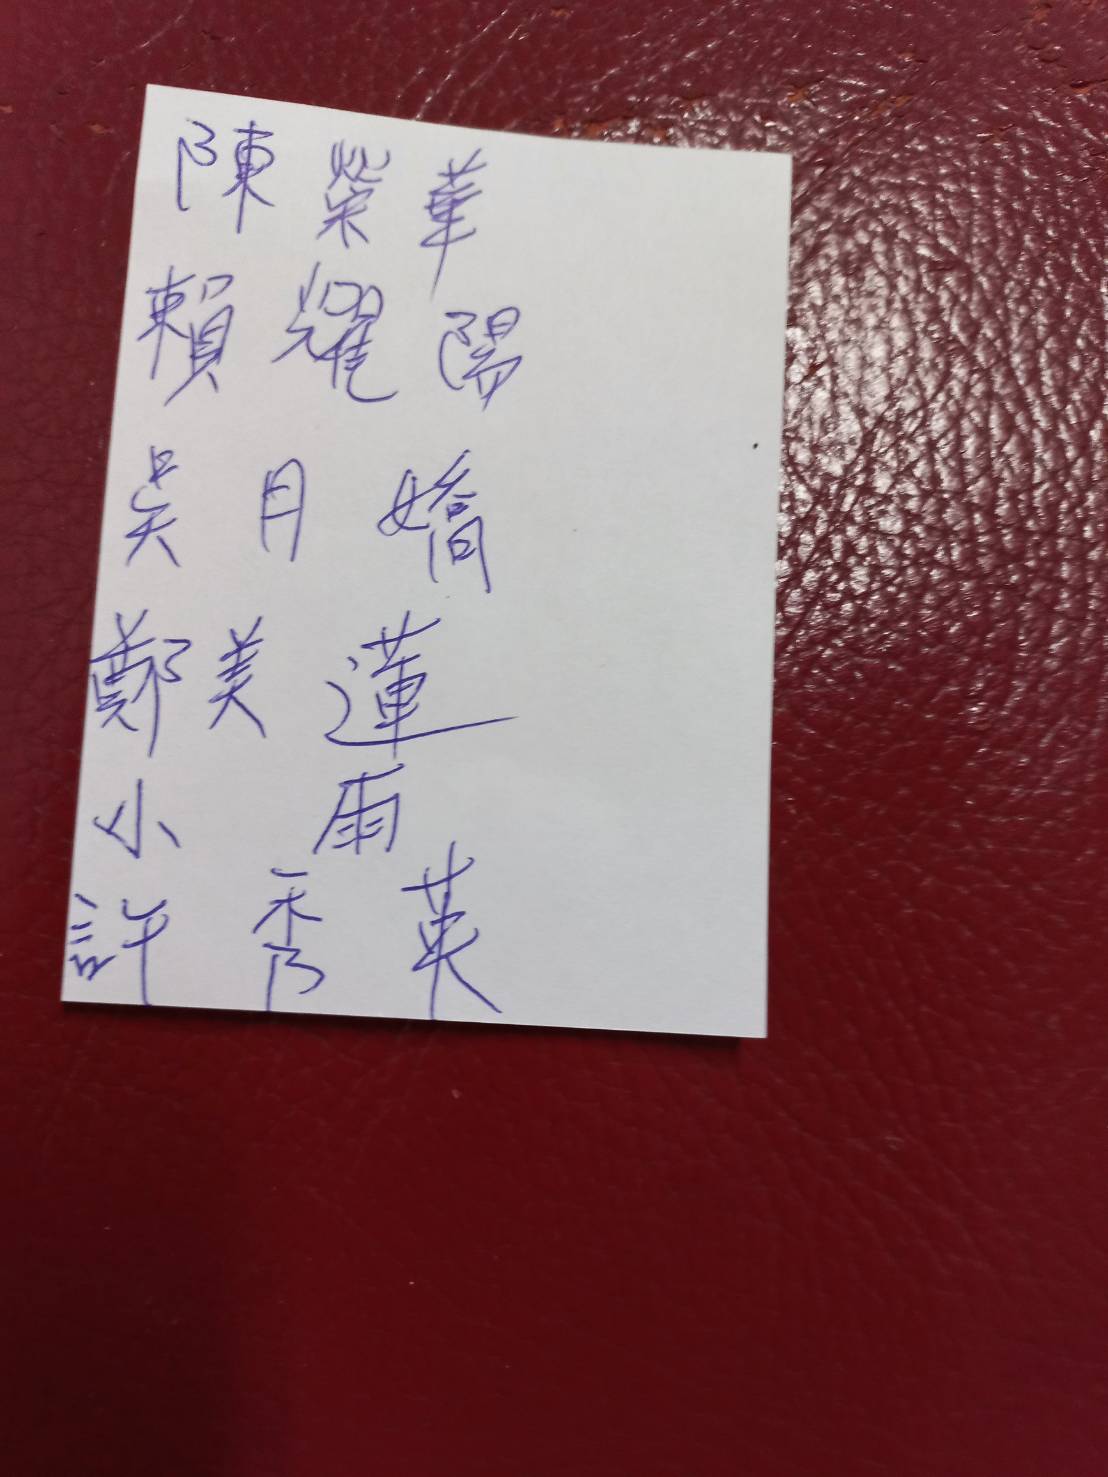 陳榮華
賴耀陽
吳月嬌
鄭美蓮
小雨
許秀英